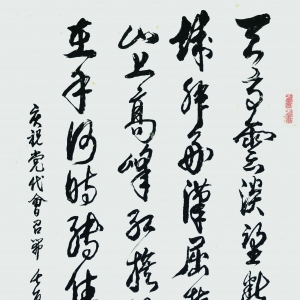 天高雲淡望斷
城非好漢屈指
山上高峰紅旗
在手何時縛住
庆祝党代會召開